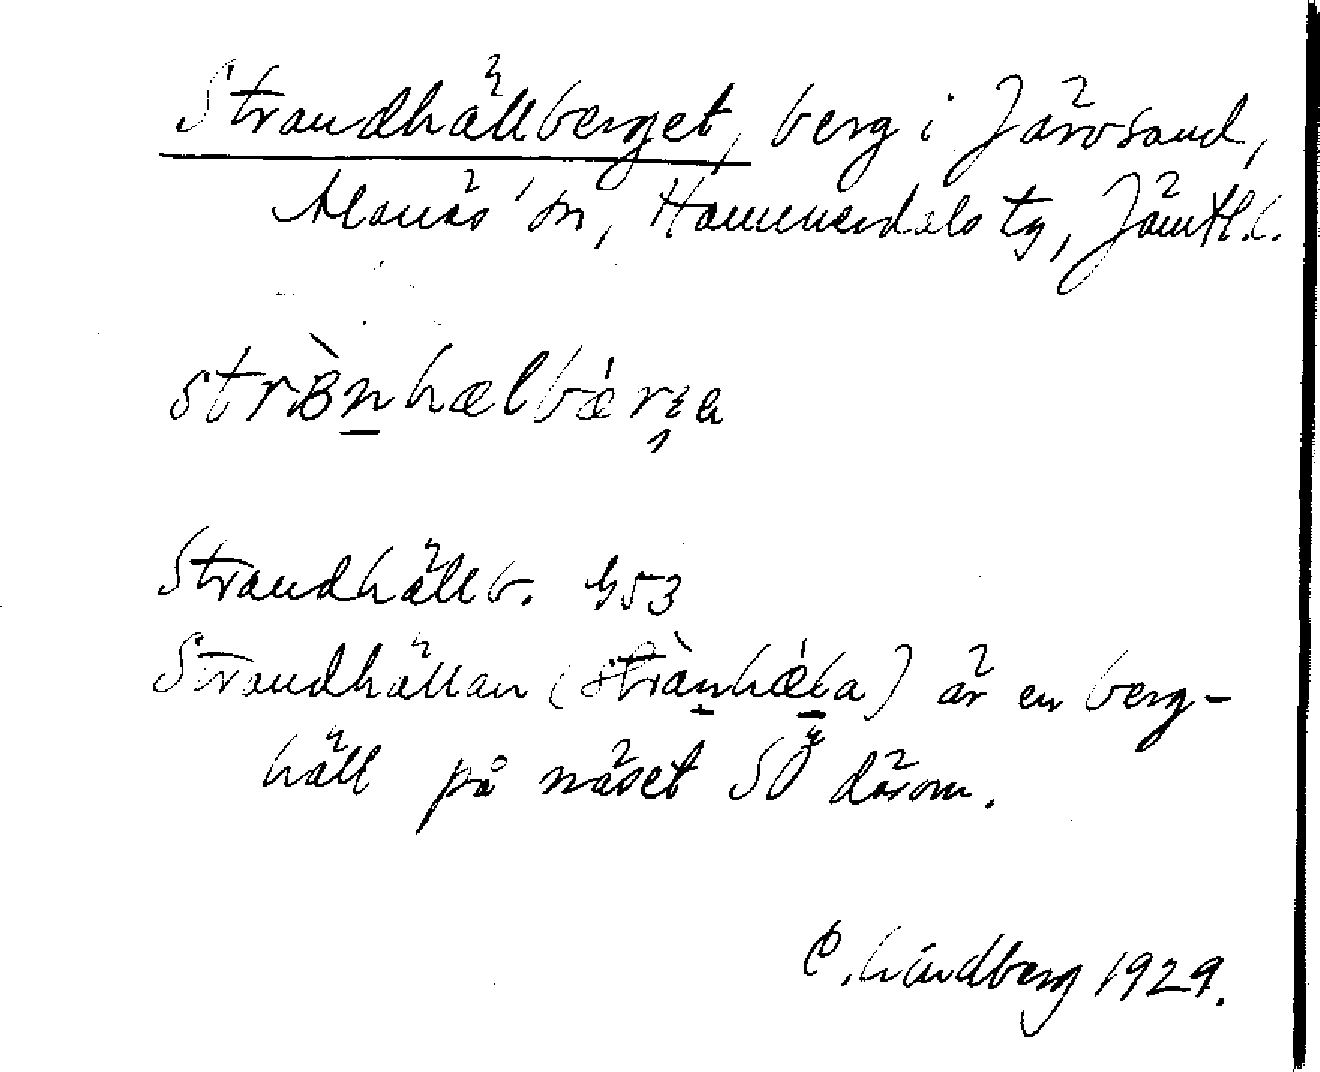 Strandhällberget, berg i Järvsand,
Alanäs' sn, Hammerdals tg, Jämtl. l.
Strandhällb. G53
Strandhällan (strànhæ̀la) är en berg-
häll på näset SÖ därom.
C. Lindberg 1929.